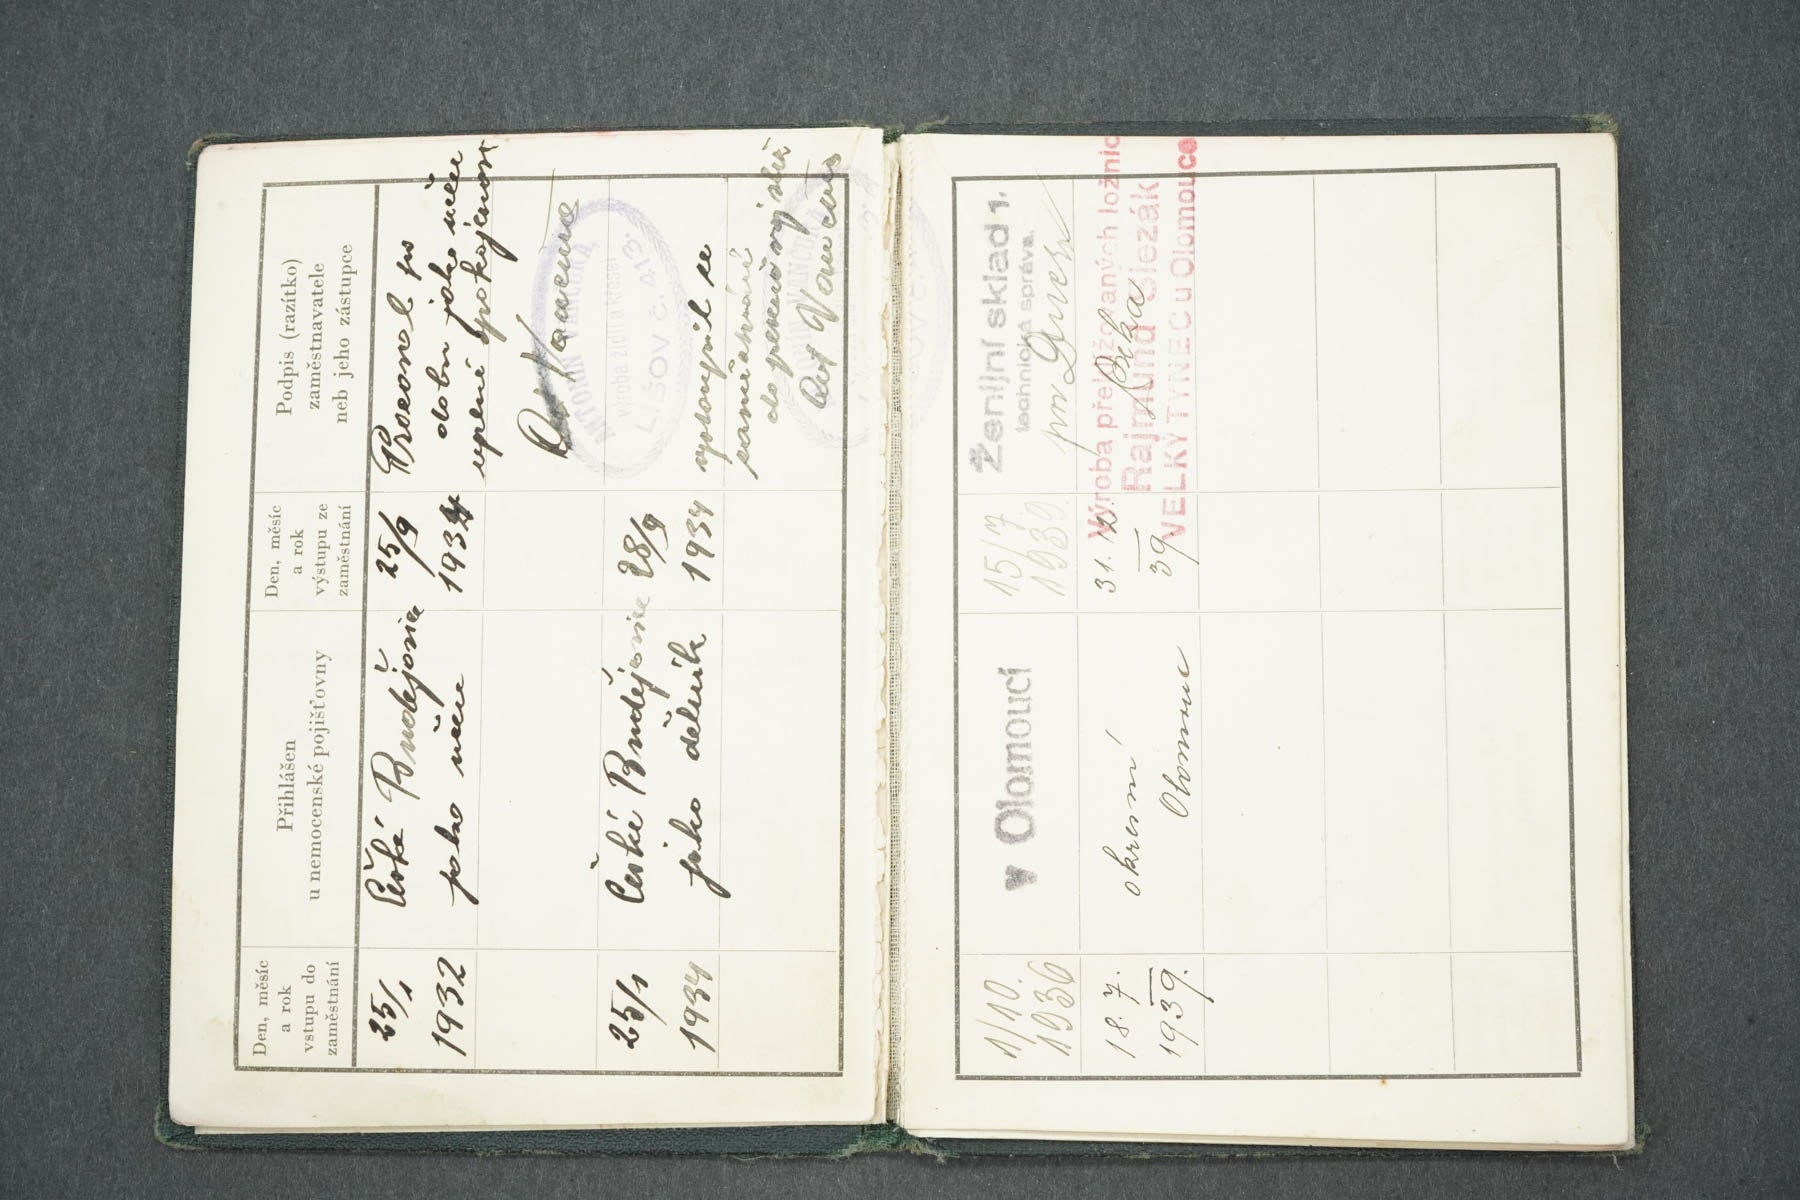 Den, měsíc
a rok
vstupu do
zaměstnání
Přihlášen
u nemocenské pojišťovny
Den, měsíc
a rok
výstupu ze
zaměstnání
Podpis (razítko)
zaměstnavatele
neb jeho zástupce
25/1
1932
České Budějovice
jako učeň
25/9
193
dobu jako učeň
úplné spokojenosti
ANTONÍN
Výroba židlí a křesel
LIŠOV č. 413.
25/1
1934
České Budějovice
jako dělník
28/9
1934
vystoupil ze
zaměstnání
do presenční služ
Ant
1/10.
1936
v Olomouci
15/7
1939.
Ženijní sklad 1.
technická správa.
18. 7.
1939.
okresní
Olomouc
31.
39.
Výroba přeližovaných ložnic
Rajmund Slezák
VELKÝ TÝNEC u Olomouce